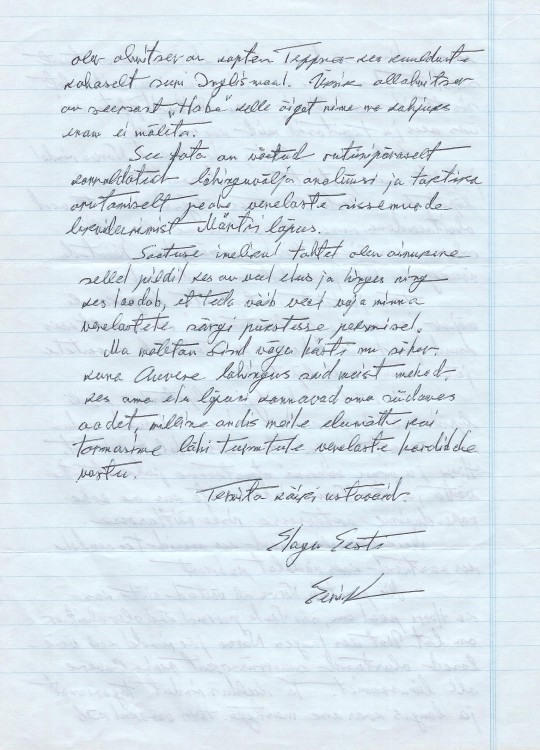 olev ohvitser on kapten Teppner kes kuuldavasti
kahaselt suri Inglismaal.
on seersant „Habe" kelle õiget nime me kahjuks
enam ei mäleta.
See foto on võetud rutiinipäraselt
korraldatud lahinguvälja analüüsi ja taktika
arutamiselt peale venelaste sissemurde
likvideerimist Märtsi lõpus.
Saatuse imelikul tahtel olen ainukene
sellel pildil kes on veel elus ja hinges ning
kes loodab, et teda võib veel vaja minna
venelastele särgi püksitesse panemisel.
Ma mäletan Sind väga hästi mu sõber,
kuna Auvere lahingus said meist mehed,
kes oma elu lõpuni kannavad oma südames
aadet, milline andis meile elumõtte kui
tormasime läbi turmtule venelaste kordide
vastu.
Tervita kõiki ustavaid.
Elagu Eesti